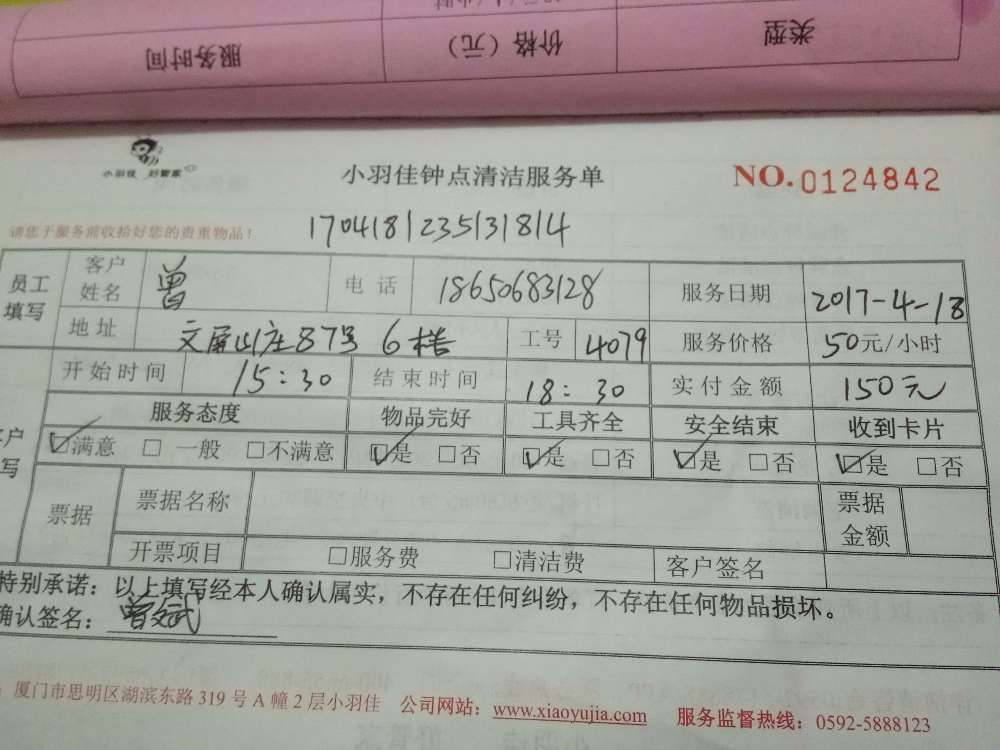 类型 价格（元） 服务时间
小羽佳 好管家
小羽佳钟点清洁服务单 NO.0124842
请您于服务前收拾好您的贵重物品！ 1704181235131814
员工填写 客户姓名 曾 电话 18650683128 服务日期 2017-4-18
地址 文屏山庄87号 6楼 工号 4079 服务价格 50元/小时
开始时间 15:30 结束时间 18:30 实付金额 150元
服务态度 物品完好 工具齐全 安全结束 收到卡片
☑满意 □一般 □不满意 ☑是 □否 ☑是 □否 ☑是 □否 ☑是 □否
票据 票据名称 票据金额
开票项目 □服务费 □清洁费 客户签名
特别承诺：以上填写经本人确认属实，不存在任何纠纷，不存在任何物品损坏。
确认签名：曾文斌
厦门市思明区湖滨东路319号A幢2层小羽佳 公司网站：www.xiaoyujia.com 服务监督热线：0592-5888123